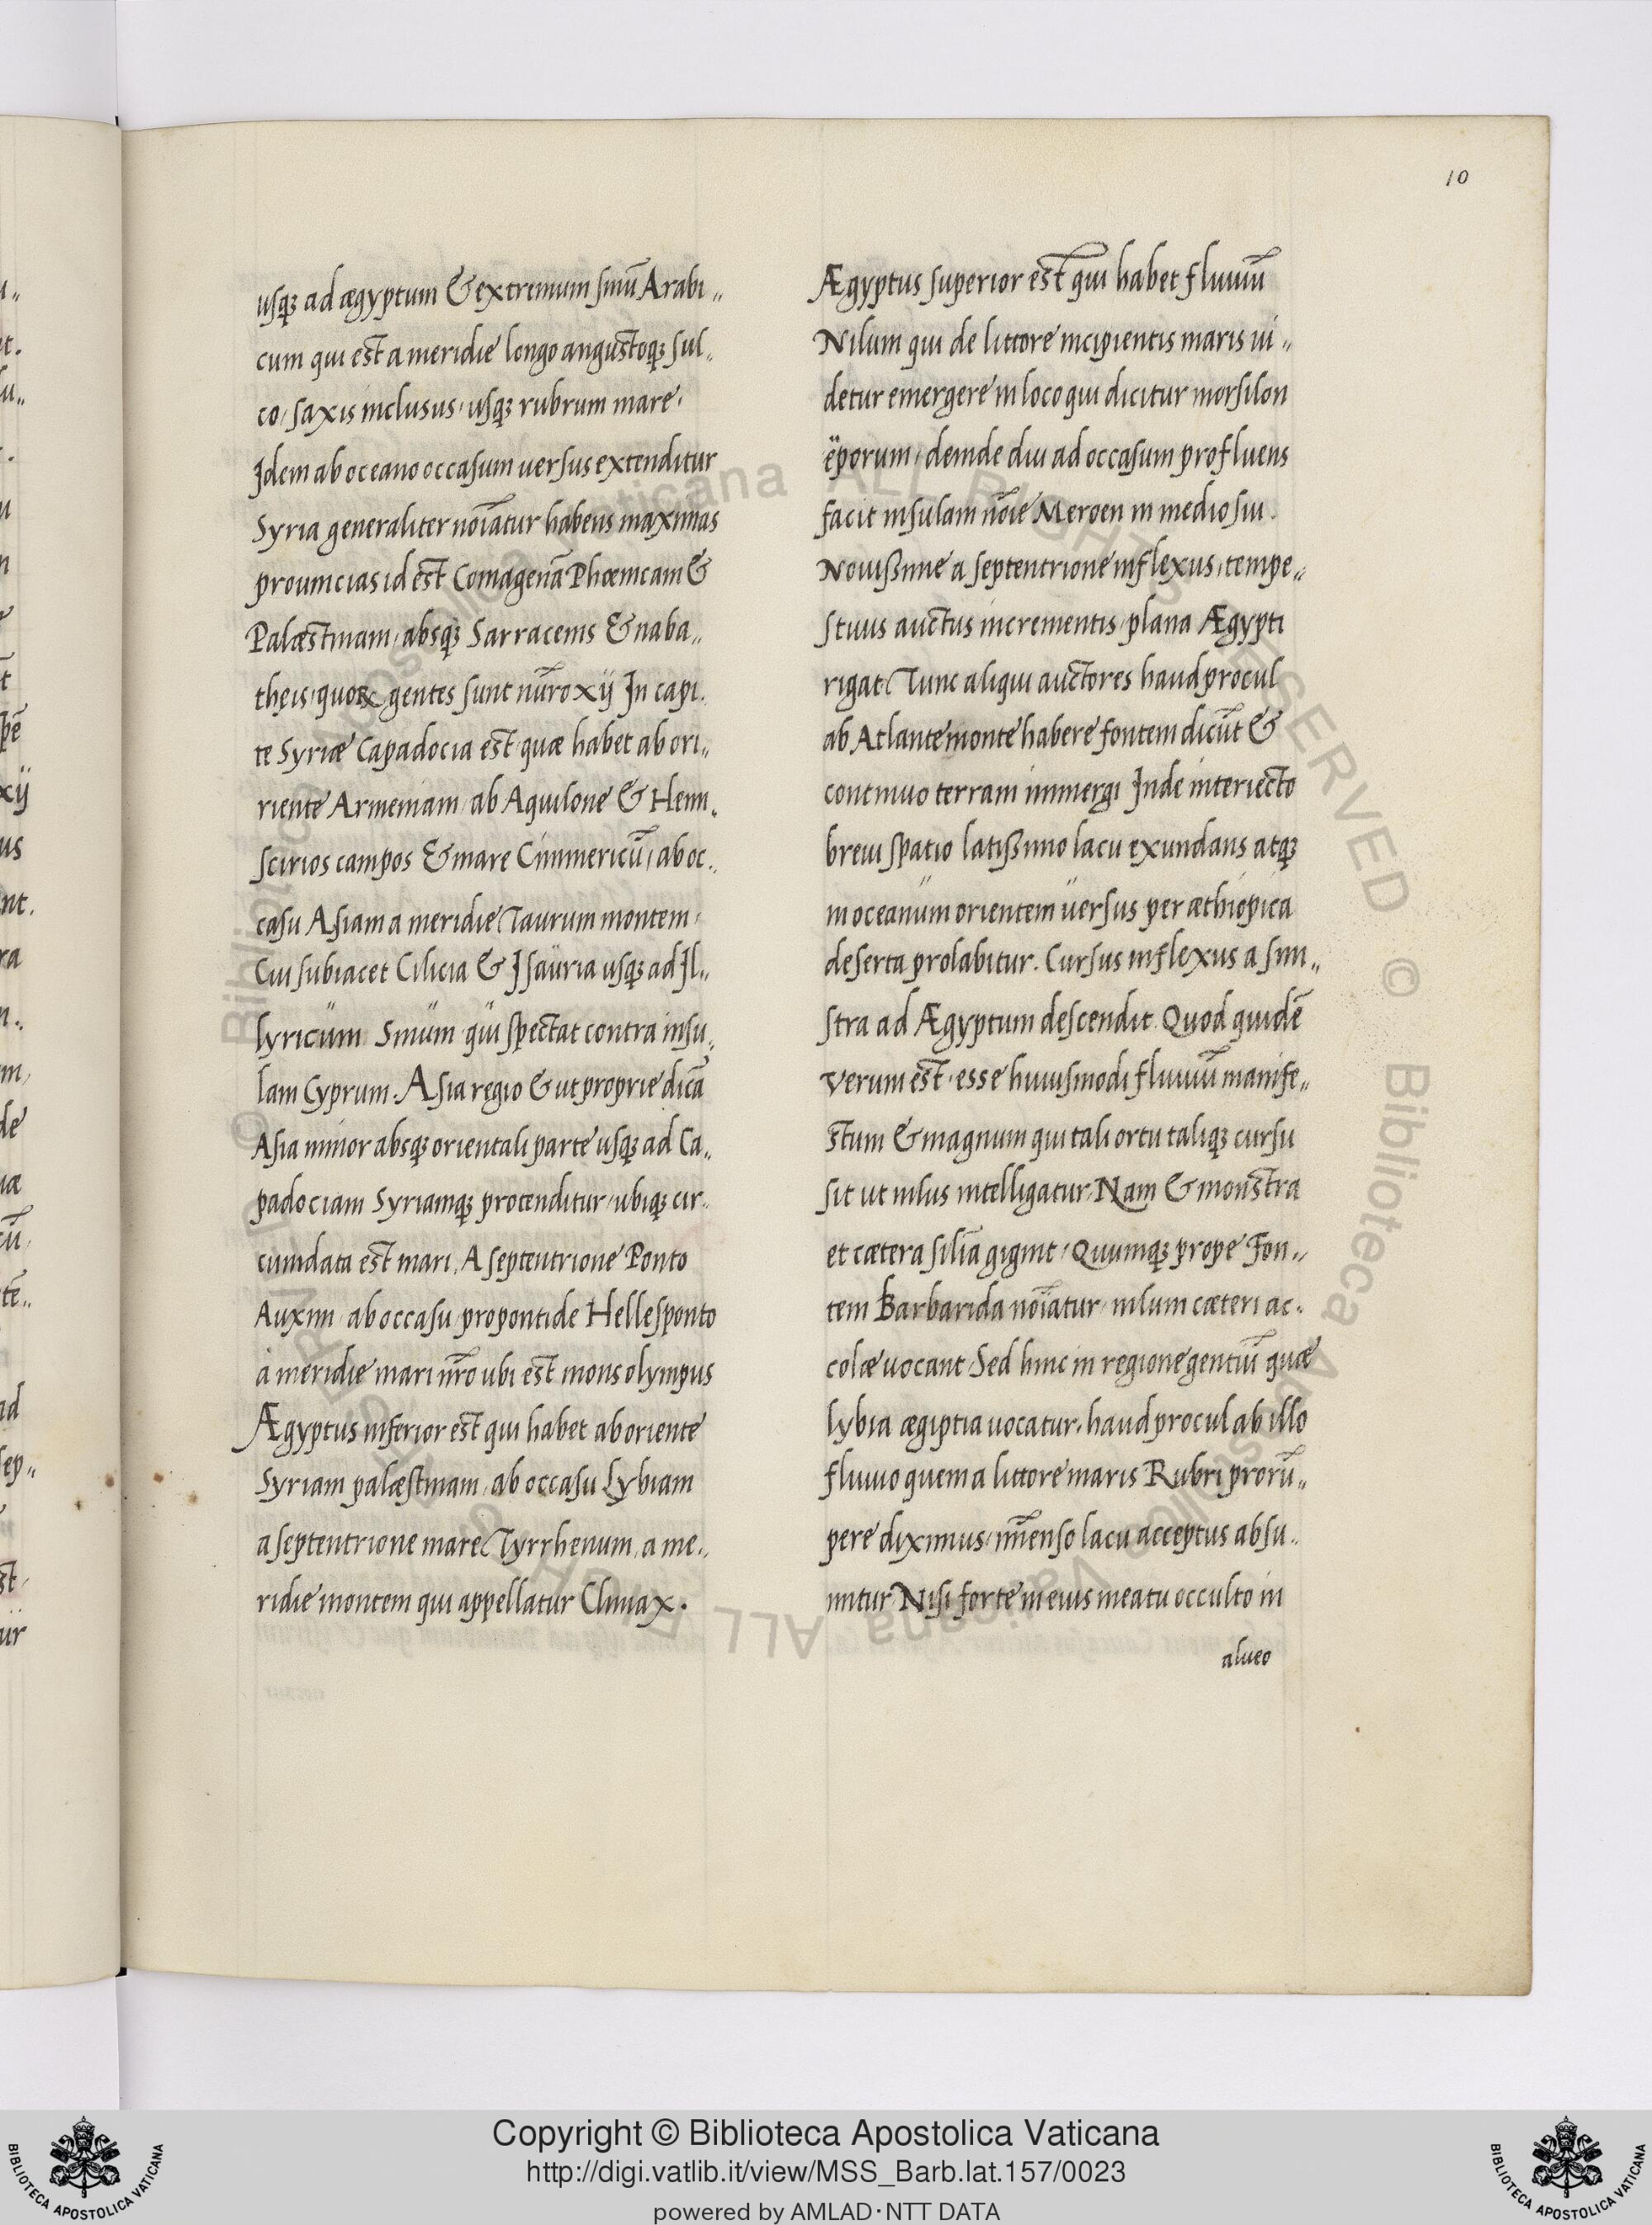 10
usqꝫ ad ægyptum & extremum sinū Arabi„
cum qui est a meridie longo angustoqꝫ sul„
co, saxis inclusus, usqꝫ rubrum mare,
Idem ab oceano occasum uersus extenditur
Syria generaliter noīatur habens maximas
prouincias id est Comagenā Phœnicam &
Palæstinam, absqꝫ Sarracenis & naba„
thęis, quoꝝ gentes sunt nūro xij In capi.
te Syriæ Capadocia est, quæ habet ab ori„
riente Armeniam, ab Aquilone & Hem.
scirios campos & mare Cimmericū, ab oc„
casu Asiam a meridie Taurum montem,
Cui subiacet Cilicia & Isaüria usqꝫ ad Il„
lyricüm Sinüm qüi spectat contra insu„
lam Cyprum. Asia regio & ut proprie dicā
Asia minor absqꝫ orientali parte usqꝫ ad Ca„
padociam Syriamqꝫ protenditur, ubiqꝫ cir„
cumdata est mari. A septentrione Ponto
Auxini, ab occasu propontide Hellesponto
à meridie mari nr̄o ubi est mons olympus
Ægyptus inferior est qui habet ab oriente
Syriam palæstinam, ab occasu Lybiam
a septentrione mare Tyrrhenum, a me„
ridie montem qui appellatur Climax.
Ægyptus superior est qui habet fluuiū
Nilum qui de littore incipientis maris ui„
detur emergere in loco qui dicitur morsilon
ëporum, deinde diu ad occasum profluens
facit insulam nōie Meroen in medio sui.
Nouißime a septentrione inflexus, tempe„
stiuus auctus incrementis, plana Ægypti
rigat Tunc aliqui auctores haud procul
ab Atlante monte habere fontem dicūt &
continuo terram immergi Inde interiecto
breui spatio latißimo lacu exundans atqꝫ
in oceanüm orientem üersus per æthiopica
deserta prolabitur. Cursus inflexus a sini„
stra ad Ægyptum descendit. Quod quidē
verum est, esse huiusmodi fluuiū manife„
stum & magnum qui tali ortu taliqꝫ cursu
sit ut nilus intelligatur, Nam & monstra
et cætera silīa gignit, Quumqꝫ prope Fon„
tem Barbarida noīatur, nilum cæteri ac„
colæ uocant, Sed hinc in regione gentiū quæ
lybia ægiptia uocatur, haud procul ab illo
fluuio quem a littore maris Rubri prorū„
pere diximus, īmenso lacu acceptus absu„
mitur Nisi forte in eius meatu occulto in
alueo
Copyright © Biblioteca Apostolica Vaticana
http://digi.vatlib.it/view/MSS_Barb.lat.157/0023
powered by AMLAD·NTT DATA
BIBLIOTECA APOSTOLICA VATICANA
BIBLIOTECA APOSTOLICA VATICANA